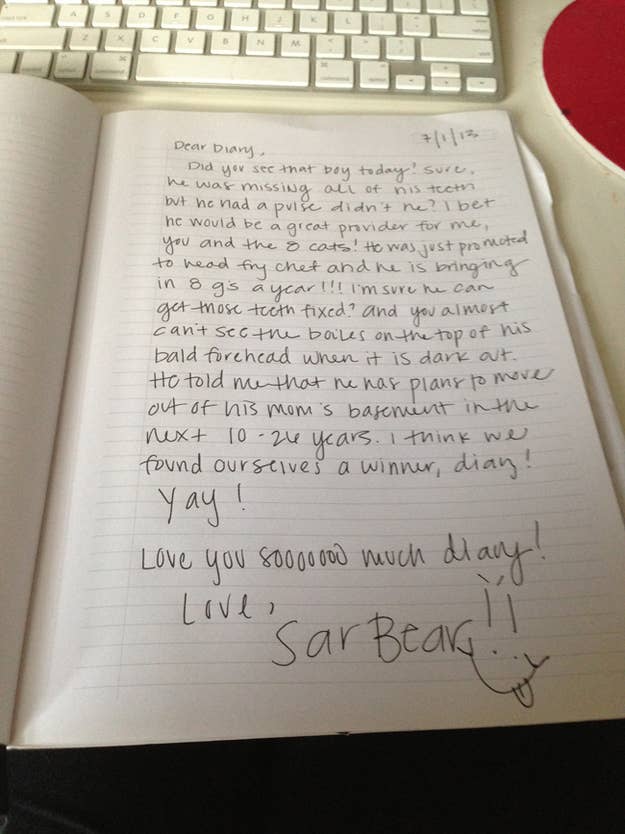 A S D F G H J K L
Z X C V B N M
command
command
option
7/1/13
Dear Diary,
Did you see that boy today? Sure,
he was missing all of his teeth
but he had a pulse didn't he? I bet
he would be a great provider for me,
you and the 8 cats! He was just promoted
to head fry chef and he is bringing
in 8 g's a year!!! I'm sure he can
get those teeth fixed? And you almost
can't see the boiles on the top of his
bald forehead when it is dark out.
He told me that he has plans to move
out of his mom's basement in the
next 10-26 years. I think we
found ourselves a winner, diary!
Yay!
Love you soooooo much diary!
Love,
Sar Bear!!